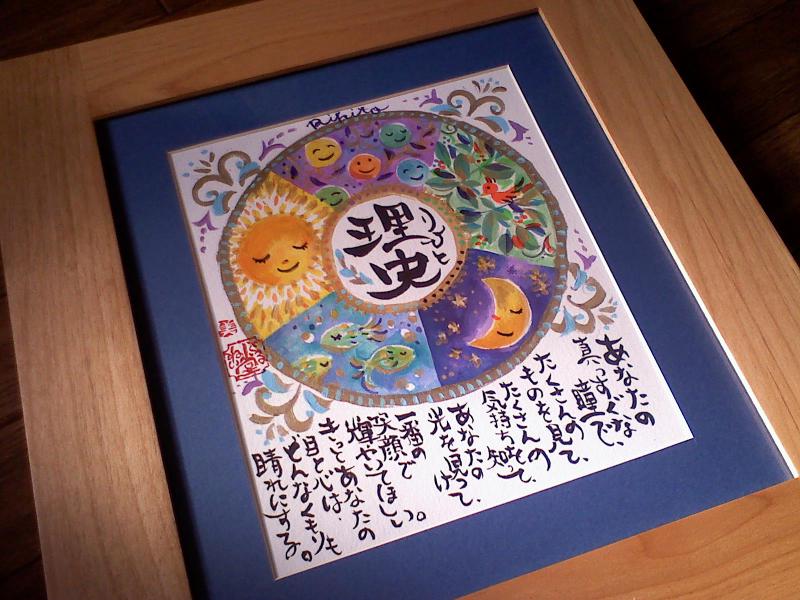 Rihito
理史
りひと
あなたの
真っすぐな
瞳で、
たくさんの
ものを見て、
たくさんの
気持ちを知って、
あなたの
光を見つけ、
一番の
笑顔で
輝やいてほしい。
きっとあなたの
目と心は、
どんなくもりも
晴れにする。